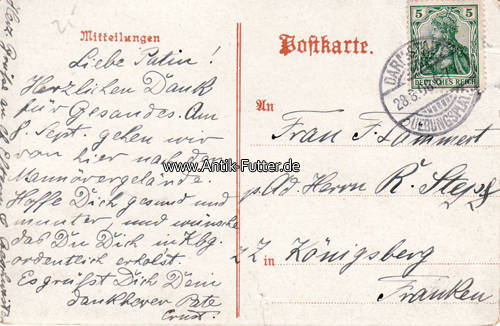 Mitteilungen
Liebe Patin!
Herzlichen Dank
für Gesandes. Am
8. Sept. gehen wir
von hier nach dem
Manövergelände.
Hoffe Dich gesund und
munter, und wünsche
das Du Dich in Kbg.
ordentlich erholst.
Es grüßt Dich Dein
dankbarer Pate
Ernst.
Herzl. Grüße an
Postkarte.
5 5
DEUTSCHES REICH
DARMSTADT
ÜBUNGSPLATZ
An
Frau F. Lammert
p. Ad. Herrn R.
in Königsberg
Franken
www.Antik-Futter.de